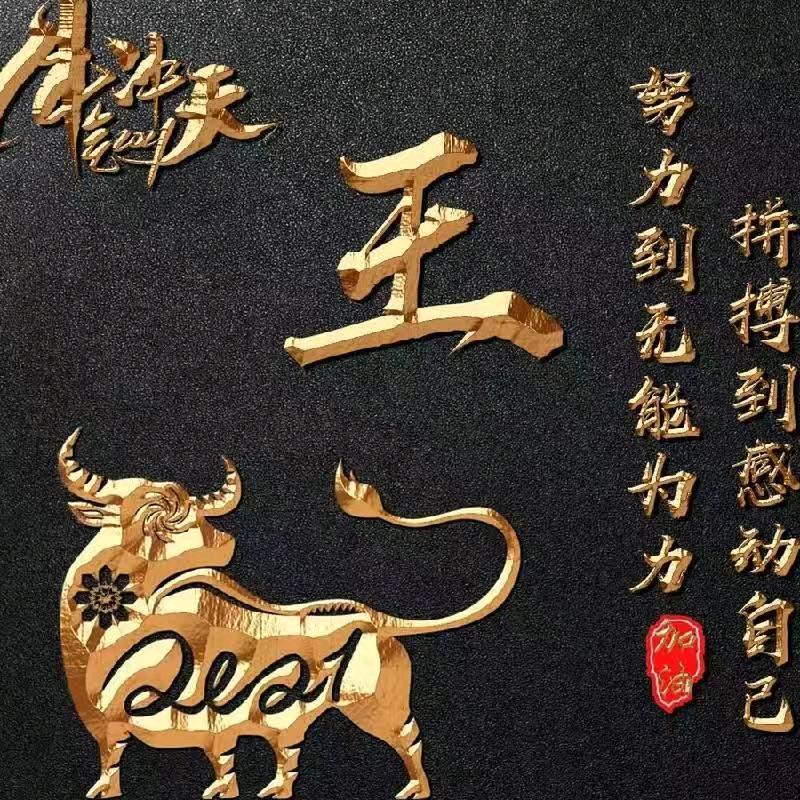 牛气冲天
2021
王
努力到无能为力
拼搏到感动自己
加油
2021